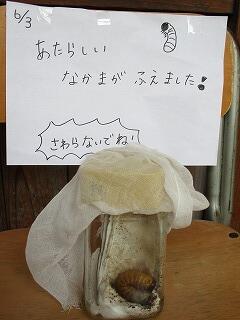 6/3
あたらしい
なかまが ふえました!
さわらないでね!